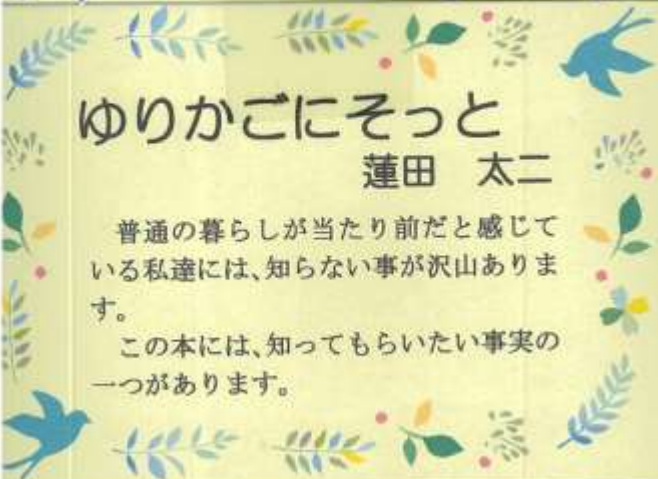 ゆりかごにそっと
蓮田　太二
　普通の暮らしが当たり前だと感じて
いる私達には、知らない事が沢山ありま
す。
　この本には、知ってもらいたい事実の
一つがあります。